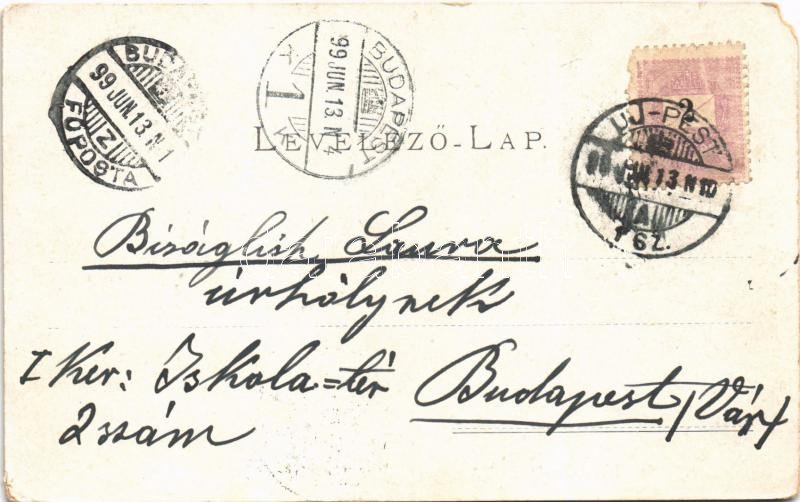 BUDAPEST
99 JUN 13 N 1
Z
FŐPOSTA
BUDAPEST
99 JUN 13 N 4
1
2
UJ-PEST
JUN 13 N 10
A
1 SZ.
LEVELEZŐ-LAP.
Laura
úrhölynek
I Ker: Iskola=tér Budapest (Vár)
2 szám